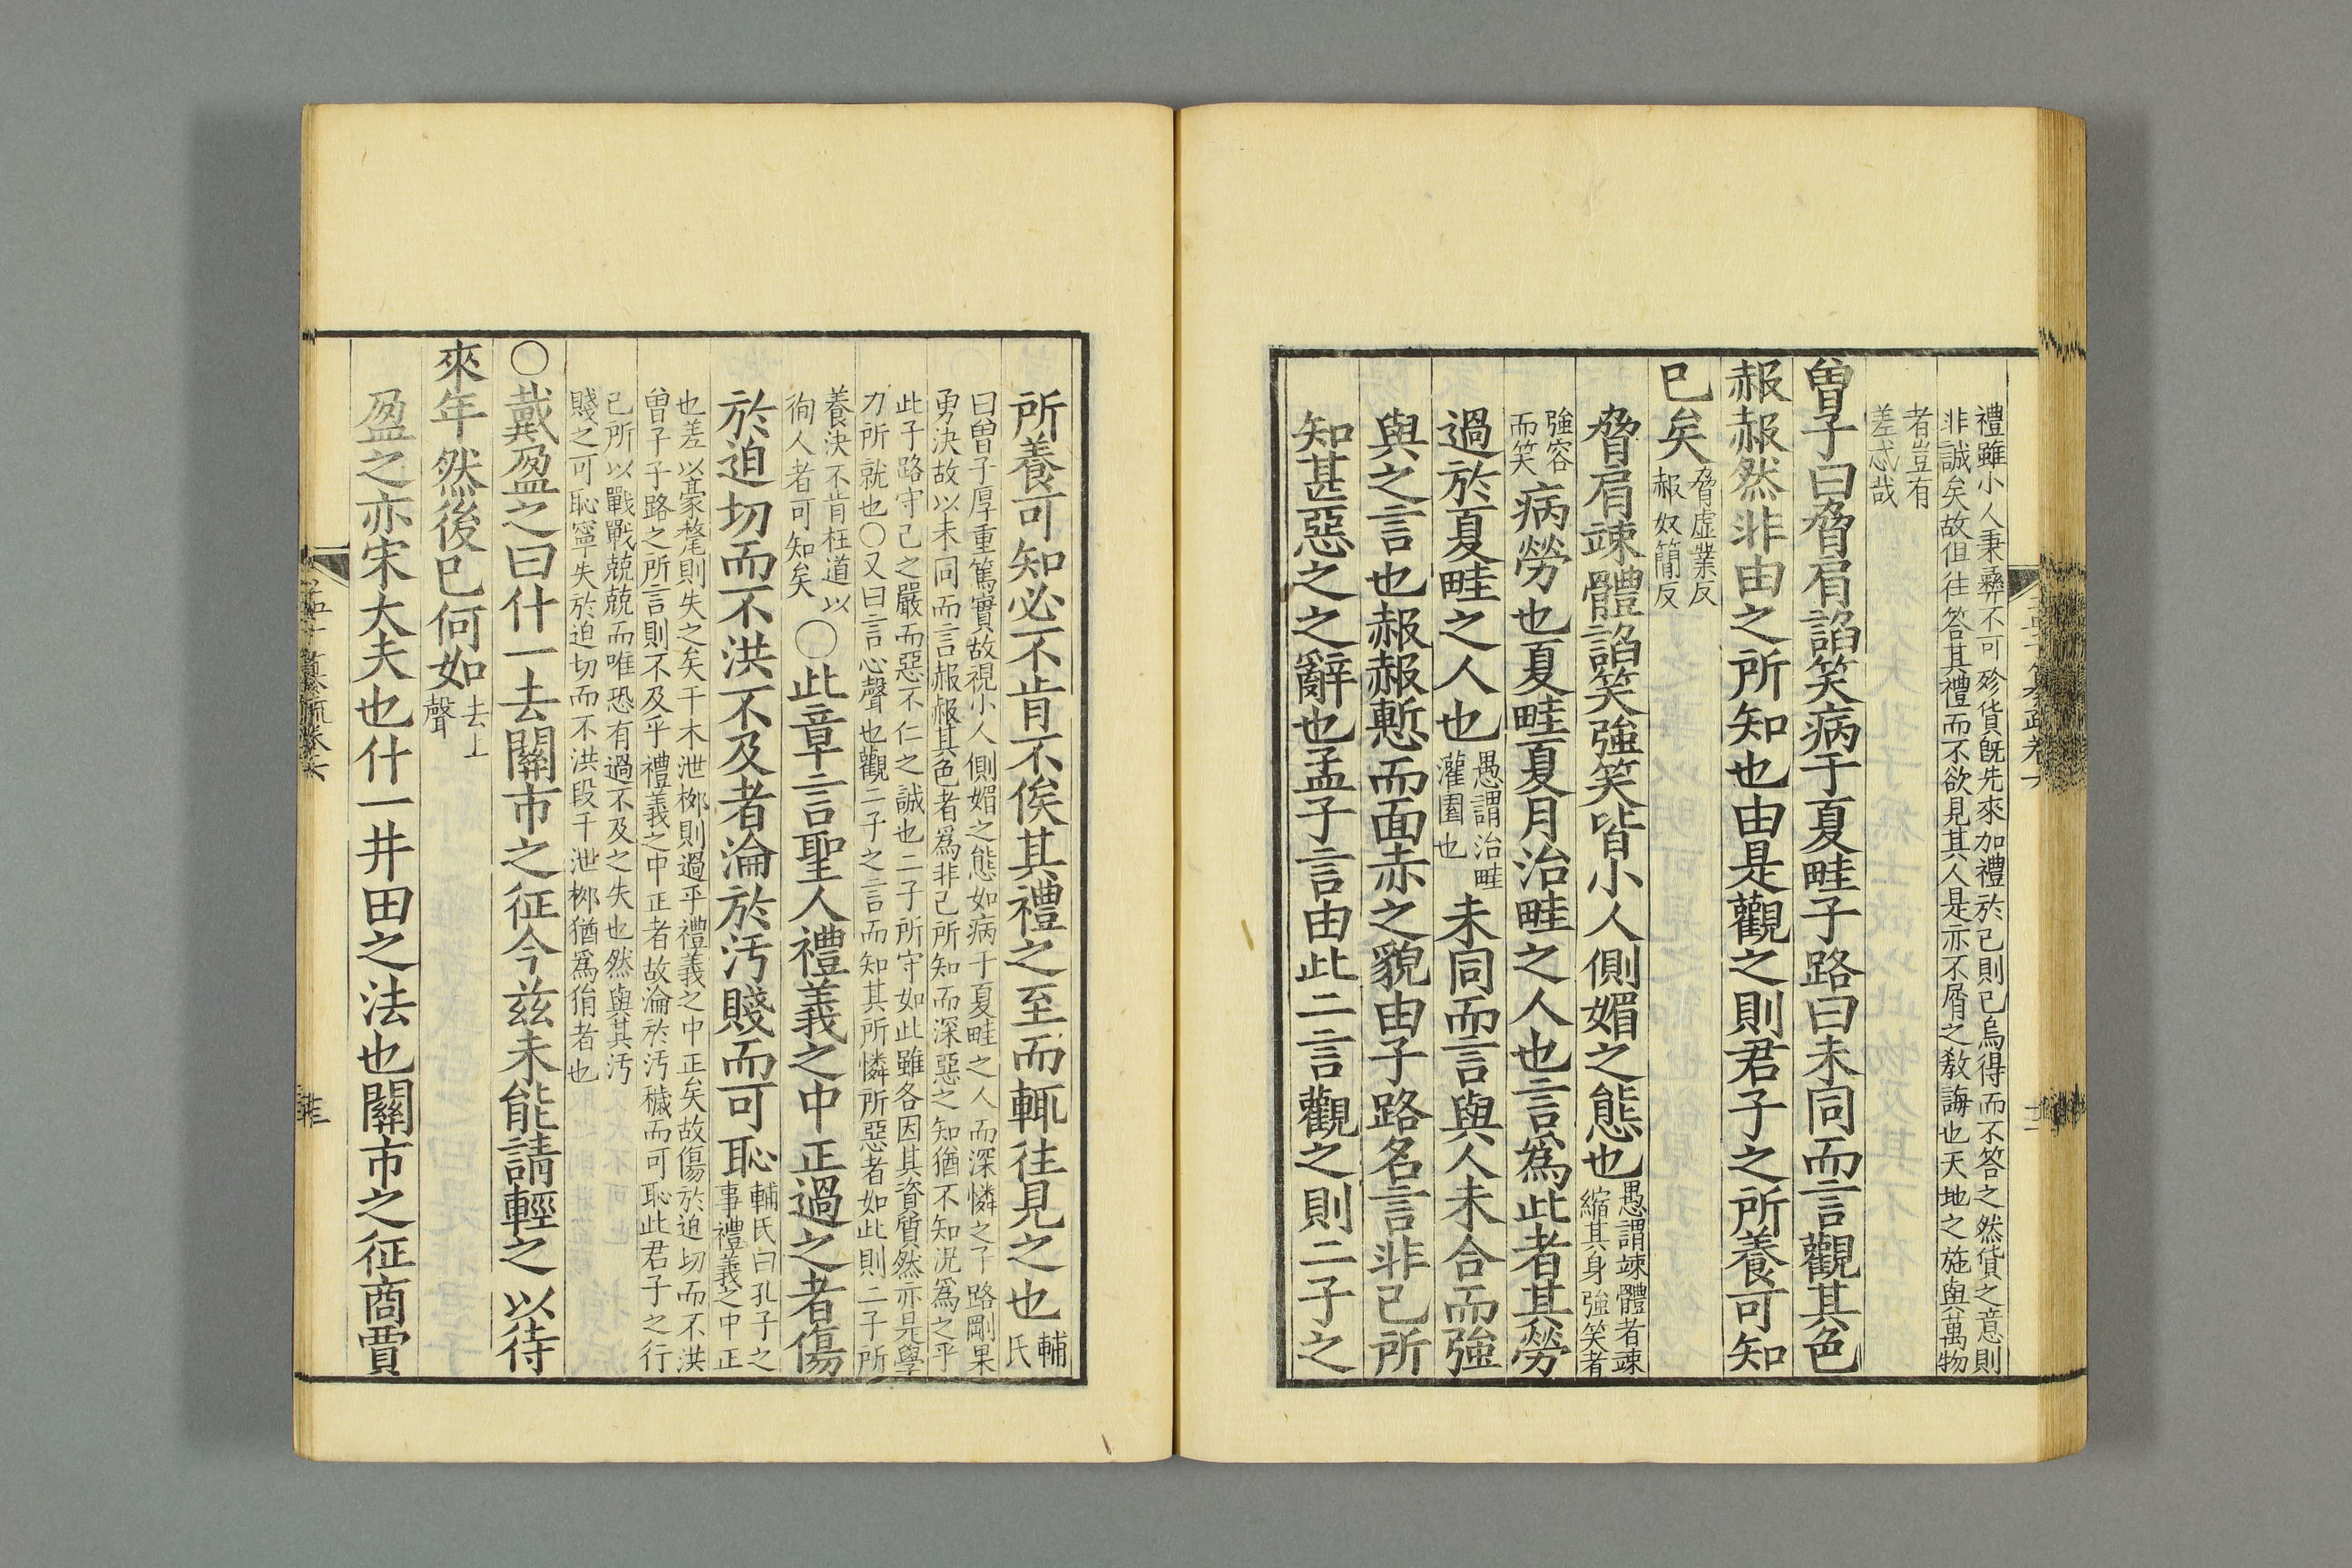 禮雖小人秉彝不可殄貨旣先來加禮於己則己烏得而不答之然貨之意則
非誠矣故但往答其禮而不欲見其人是亦不屑之敎誨也天地之施與萬物
者豈有
差忒哉
曾子曰脅肩諂笑病于夏畦子路曰未同而言觀其色
赧赧然非由之所知也由是觀之則君子之所養可知
已矣脅虛業反
赧奴簡反
脅肩竦體諂笑強笑皆小人側媚之態也愚謂竦體者竦
縮其身強笑者
強容
而笑病勞也夏畦夏月治畦之人也言爲此者其勞
過於夏畦之人也愚謂治畦
灌園也未同而言與人未合而強
與之言也赧赧慙而面赤之貌由子路名言非己所
知甚惡之之辭也孟子言由此二言觀之則二子之
所養可知必不肯不俟其禮之至而輒往見之也輔
氏
曰曾子厚重篤實故視小人側媚之態如病于夏畦之人而深憐之子路剛果
勇決故以未同而言赧赧其色者爲非己所知而深惡之知猶不知況爲之乎
此子路守己之嚴而惡不仁之誠也二子所守如此雖各因其資質然亦是學
力所就也○又曰言心聲也觀二子之言而知其所憐所惡者如此則二子所
養決不肯枉道以
徇人者可知矣○此章言聖人禮義之中正過之者傷
於迫切而不洪不及者淪於汚賤而可恥輔氏曰孔子之
事禮義之中正
也差以毫釐則失之矣干木泄柳則過乎禮義之中正矣故傷於迫切而不洪
曾子子路之所言則不及乎禮義之中正者故淪於汚穢而可恥此君子之行
己所以戰戰兢兢而唯恐有過不及之失也然與其汚
賤之可恥寧失於迫切而不洪段干泄柳猶爲狷者也
○戴盈之曰什一去關市之征今茲未能請輕之以待
來年然後已何如去上
聲
盈之亦宋大夫也什一井田之法也關市之征商賈